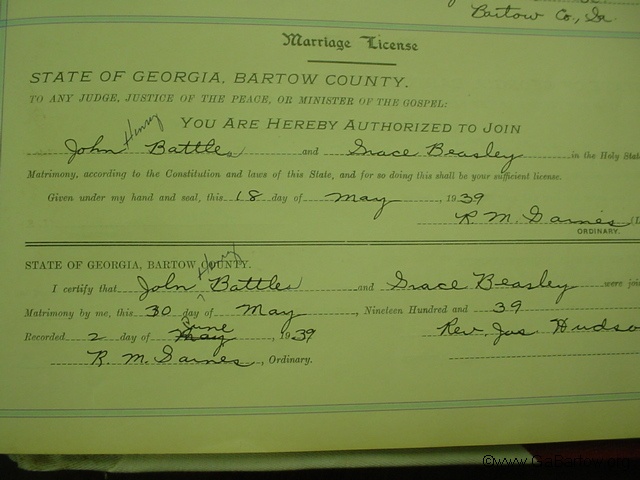 Bartow Co., Ga.
Marriage License
STATE OF GEORGIA, BARTOW COUNTY.
TO ANY JUDGE, JUSTICE OF THE PEACE, OR MINISTER OF THE GOSPEL:
YOU ARE HEREBY AUTHORIZED TO JOIN
John Henry Battle and Grace Beasley in the Holy State
Matrimony, according to the Constitution and laws of this State, and for so doing this shall be your sufficient license.
Given under my hand and seal, this 18 day of May, 1939
R. M. Gaines (L
ORDINARY.
STATE OF GEORGIA, BARTOW COUNTY.
I certify that John Henry Battle and Grace Beasley were joi
Matrimony by me, this 30 day of May, Nineteen Hundred and 39
Recorded 2 day of May June, 1939 Rev. Jas Hudso
R. M. Gaines, Ordinary.